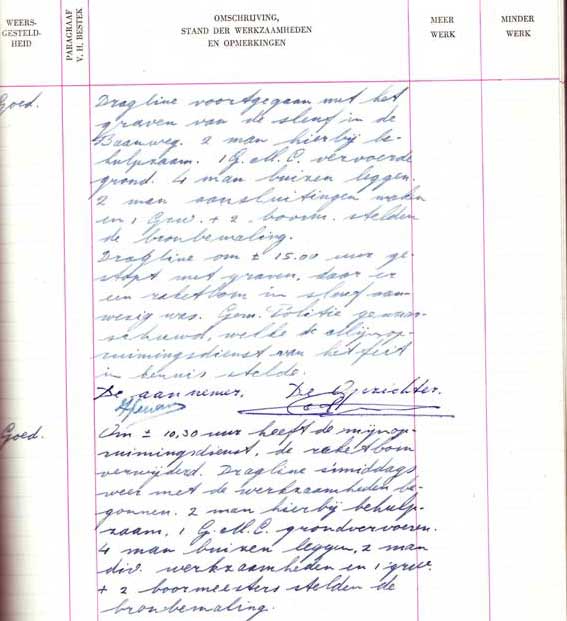 WEERS-
GESTELD-
HEID
PARAGRAAF
V. H. BESTEK
OMSCHRIJVING,
STAND DER WERKZAAMHEDEN
EN OPMERKINGEN
MEER
WERK
MINDER
WERK
Goed.
Dragline voortgegaan met het
graven van de sleuf in de
Baanweg. 2 man hierbij be-
hulpzaam. 1 G.M.C. vervoerde
grond. 4 man buizen leggen.
2 man aansluitingen maken
en 1 Gruv. + 2 boorm. stelden
de bronbemaling.
Dragline om ± 15.00 uur ge-
stopt met graven, daar er
een raketbom in sleuf aan-
wezig was. Gem. Politie gewaar-
schuwd, welke de mijnop-
ruimingsdienst van het feit
in kennis stelde.
De aannemer. De Opzichter.
Goed.
Om ± 10,30 uur heeft de mijnop-
ruimingsdienst, de raketbom
verwijderd. Dragline smiddags
weer met de werkzaamheden be-
gonnen. 2 man hierbij behulp-
zaam. 1 G.M.C. grondvervoeren.
4 man buizen leggen, 2 man
div. werkzaamheden en 1 gruv.
+ 2 boormeesters stelden de
bronbemaling.